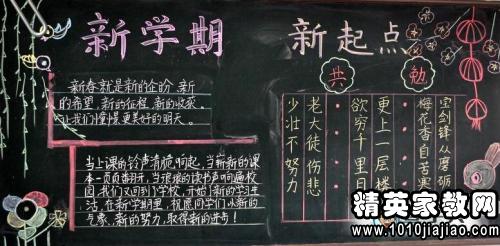 新学期 新起点
新春,就是新的企盼,新
的希望,新的征程,新的收获。
让我们憧憬更美好的明天。
当上课的铃声清脆响起,当崭新的课
本一页页翻开,当琅琅的读书声响遍校
园,我们又回到了学校,开始了新的学习生
活,在新学期里,祝愿同学们以新的
气象,新的努力,取得新的进步!
共勉
宝剑锋从磨砺
梅花香自苦寒
更上一层楼
欲穷千里目
老大徒伤悲
少壮不努力
精英家教网
www.1010jiajiao.com